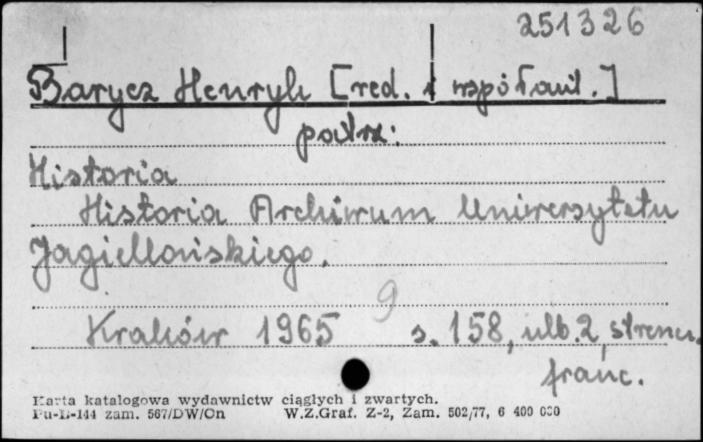 251326
Barycz Henryk [red. i współaut.]
patrz:
Historia
Historia Archiwum Uniwersytetu
Jagiellońskiego.
9
Kraków 1965 s. 158, ulb. 2, streszcz.
franc.
Karta katalogowa wydawnictw ciągłych i zwartych.
Pu-B-144 zam. 567/DW/On W.Z.Graf. Z-2, Zam. 502/77, 6 400 000